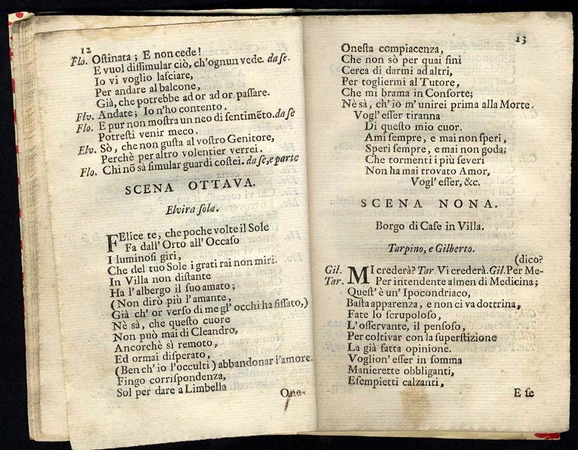 12
Flo. Ostinata; E non cede!
E vuol dissimular ciò, ch'ognun vede. da se.
Io vi voglio lasciare,
Per andare al balcone,
Già, che potrebbe ad or ad or passare.
Elv. Andate; Io n'ho contento.
Flo. E pur non mostra un neo di sentimẽto. da se
Potresti venir meco.
Elv. Sò, che non gusta al vostro Genitore,
Perchè per altro volentier verrei.
Flo. Chi nõ sà simular guardi costei. da se, e parte
SCENA OTTAVA.
Elvira sola.
FElice te, che poche volte il Sole
Fa dall'Orto all'Occaso
I luminosi giri,
Che del tuo Sole i grati rai non miri.
In Villa non distante
Ha l'albergo il suo amato;
(Non dirò più l'amante,
Già ch'or verso di me gl'occhi ha fissato,)
Nè sà, che questo cuore
Non può mai di Cleandro,
Ancorchè sì remoto,
Ed ormai disperato,
(Ben ch'io l'occulti) abbandonar l'amore.
Fingo corrispondenza,
Sol per dare a Limbella
One-
13
Onesta compiacenza,
Che non sò per quai fini
Cerca di darmi ad altri,
Per togliermi al Tutore,
Che mi brama in Consorte;
Nè sà, ch'io m'unirei prima alla Morte.
Vogl'esser tiranna
Di questo mio cuor.
Ami sempre, e mai non speri,
Speri sempre, e mai non goda;
Che tormenti i più severi
Non ha mai trovato Amor,
Vogl'esser, &c.
SCENA NONA.
Borgo di Case in Villa.
Tarpino, e Gilberto.
(dico?
Gil. MI crederà? Tar. Vi crederà. Gil. Per Me-
Tar. Per intendente almen di Medicina;
Quest'è un'Ipocondriaco,
Basta apparenza, e non ci va dottrina,
Fate lo scrupoloso,
L'osservante, il pensoso,
Per coltivar con la superstizione
La già fatta opinione.
Voglion'esser in somma
Manierette obbliganti,
Esempietti calzanti,
E se